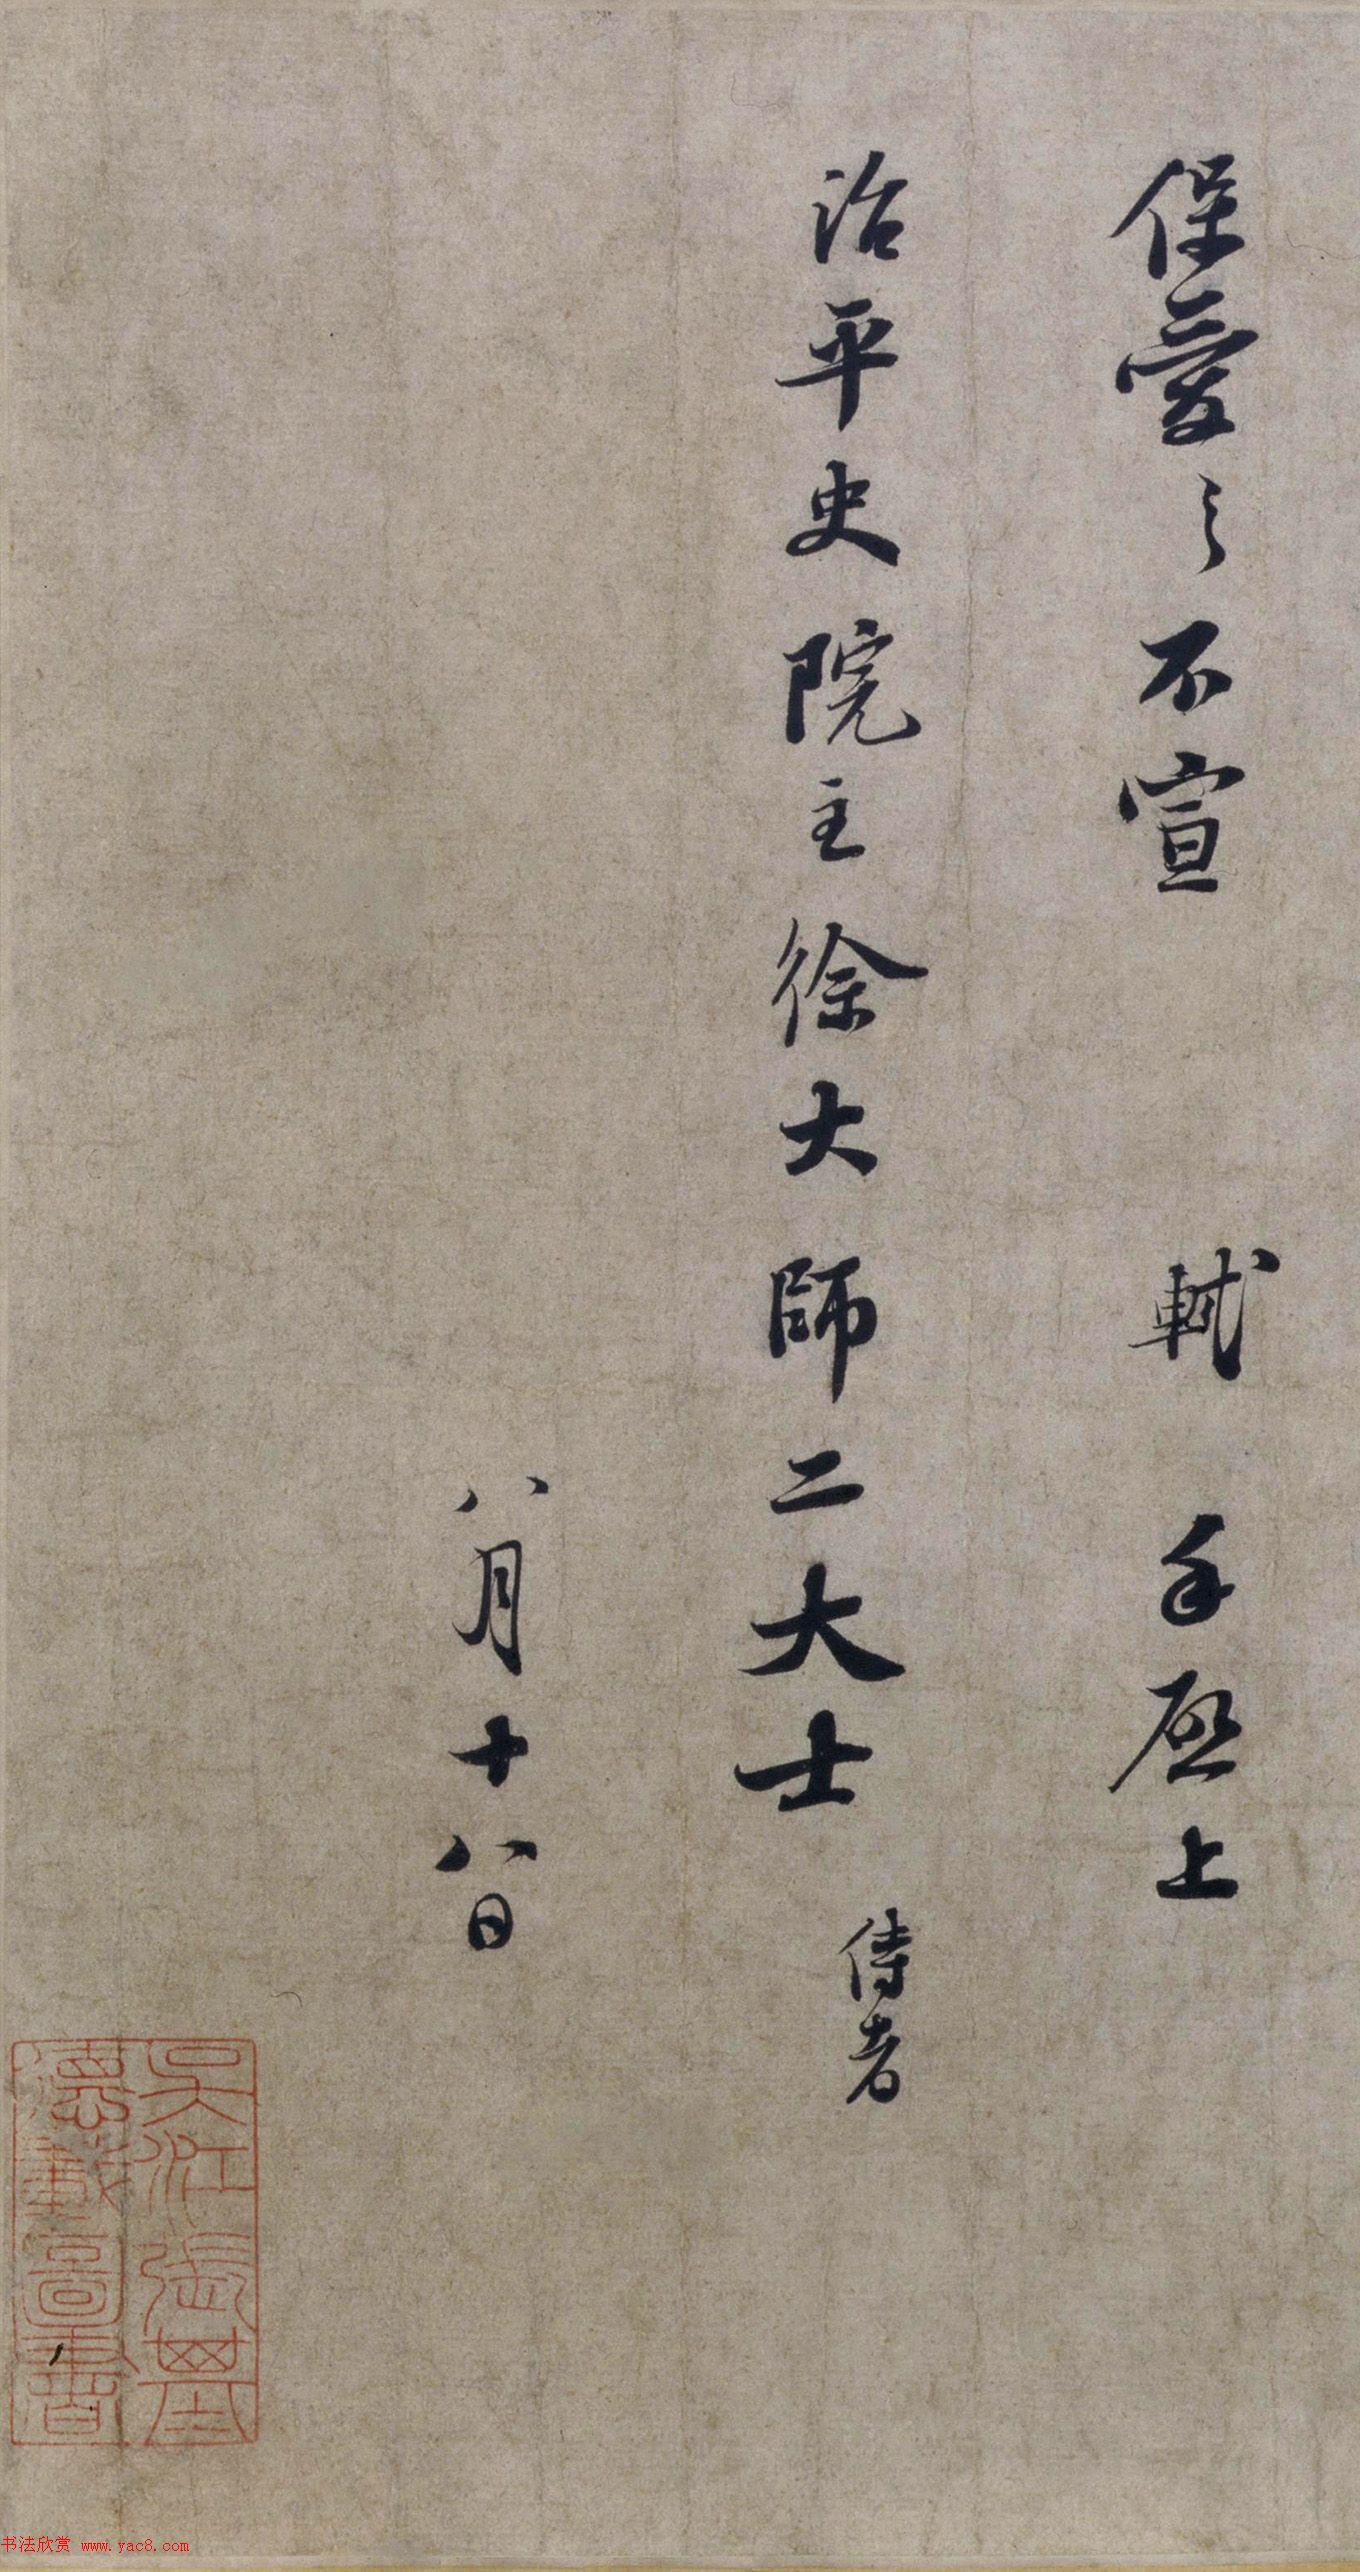 保愛之不宣　軾手啟上
治平史院主徐大師二大士侍者
八月十八日
吳江張基
德載圖書
书法欣赏 www.yac8.com